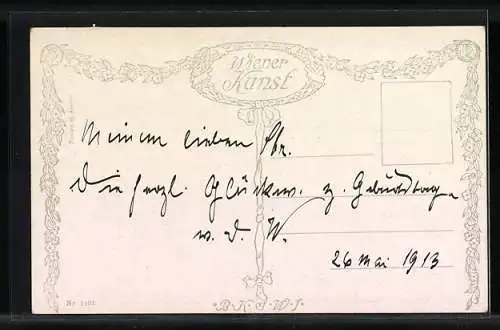 Wiener
Kunst
Meinem lieben
Die herzl. Glückw. z. Geburtstag.
v. d. W.
26 Mai 1913
B.K.W.I.